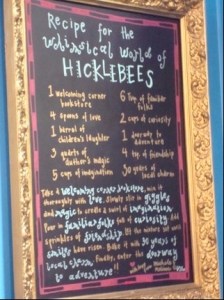 Recipe for the
whimsical world of
HICKLIBEES
1 welcoming corner
bookstore
4 spoons of love
1 barrel of
children's laughter
3 quarts of
author's magic
5 cups of imagination
6 Tons of familiar
folks
2 cups of curiosity
1 journey to
adventure
4 tsp of friendship
30 years of
local charm
Take a welcoming corner bookstore, mix it
thoroughly with love. Slowly stir in giggles
and magic to create a swirl of imagination.
Pour in familiar folks full of curiosity. Add
sprinkles of friendship. Let the mixture set until
smiles have risen. Bake it with 30 years of
local charm. Finally, enter the doorway
to adventure!